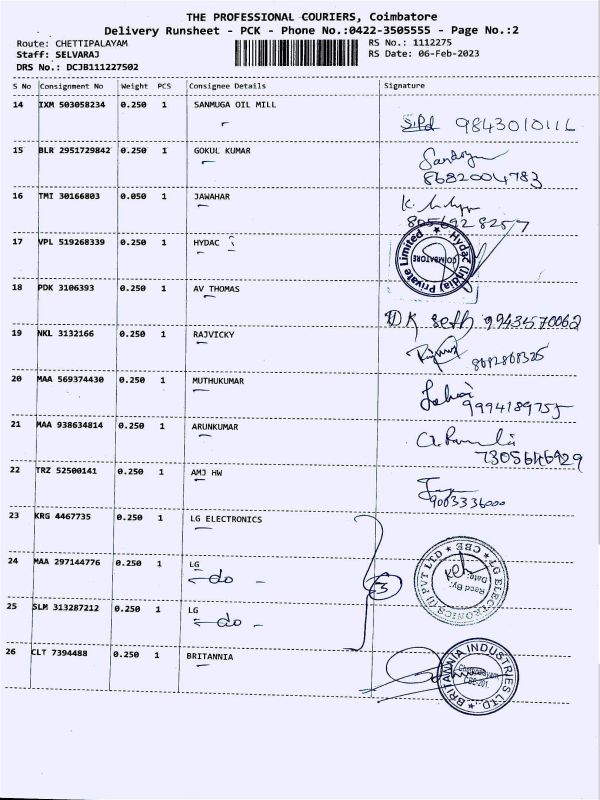 THE PROFESSIONAL COURIERS, Coimbatore
Delivery Runsheet - PCK - Phone No.:0422-3505555 - Page No.:2
Route: CHETTIPALAYAM RS No.: 1112275
Staff: SELVARAJ RS Date: 06-Feb-2023
DRS No.: DCJB111227502
S No Consignment No Weight PCS Consignee Details Signature
14 IXM 503058234 0.250 1 SANMUGA OIL MILL
15 BLR 2951729842 0.250 1 GOKUL KUMAR
8682004783
16 TMI 30166803 0.050 1 JAWAHAR
8056928257
17 VPL 519268339 0.250 1 HYDAC
Hydac (India) Private Limited
COIMBATORE
18 PDK 3106393 0.250 1 AV THOMAS
DK Seth 9943570062
19 NKL 3132166 0.250 1 RAJVICKY
8682868325
20 MAA 569374430 0.250 1 MUTHUKUMAR
9994189755
21 MAA 938634814 0.250 1 ARUNKUMAR
7305646929
22 TRZ 52500141 0.250 1 AMJ HW
9003336000
23 KRG 4467735 0.250 1 LG ELECTRONICS
24 MAA 297144776 0.250 1 LG
-do-
25 SLM 313287212 0.250 1 LG
-do-
3
LG ELECTRONICS (I) PVT LTD CBE
Recd By:
Date:
26 CLT 7394488 0.250 1 BRITANNIA
BRITANNIA INDUSTRIES LTD.